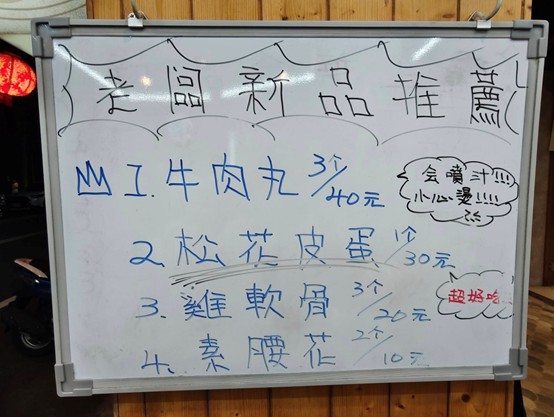 老闆新品推薦
1. 牛肉丸 3个/40元
会噴汁!!!
小心燙!!!!
2. 松花皮蛋 1个/30元
3. 雞軟骨 3个/20元
超好吃
4. 素腰花 2个/10元